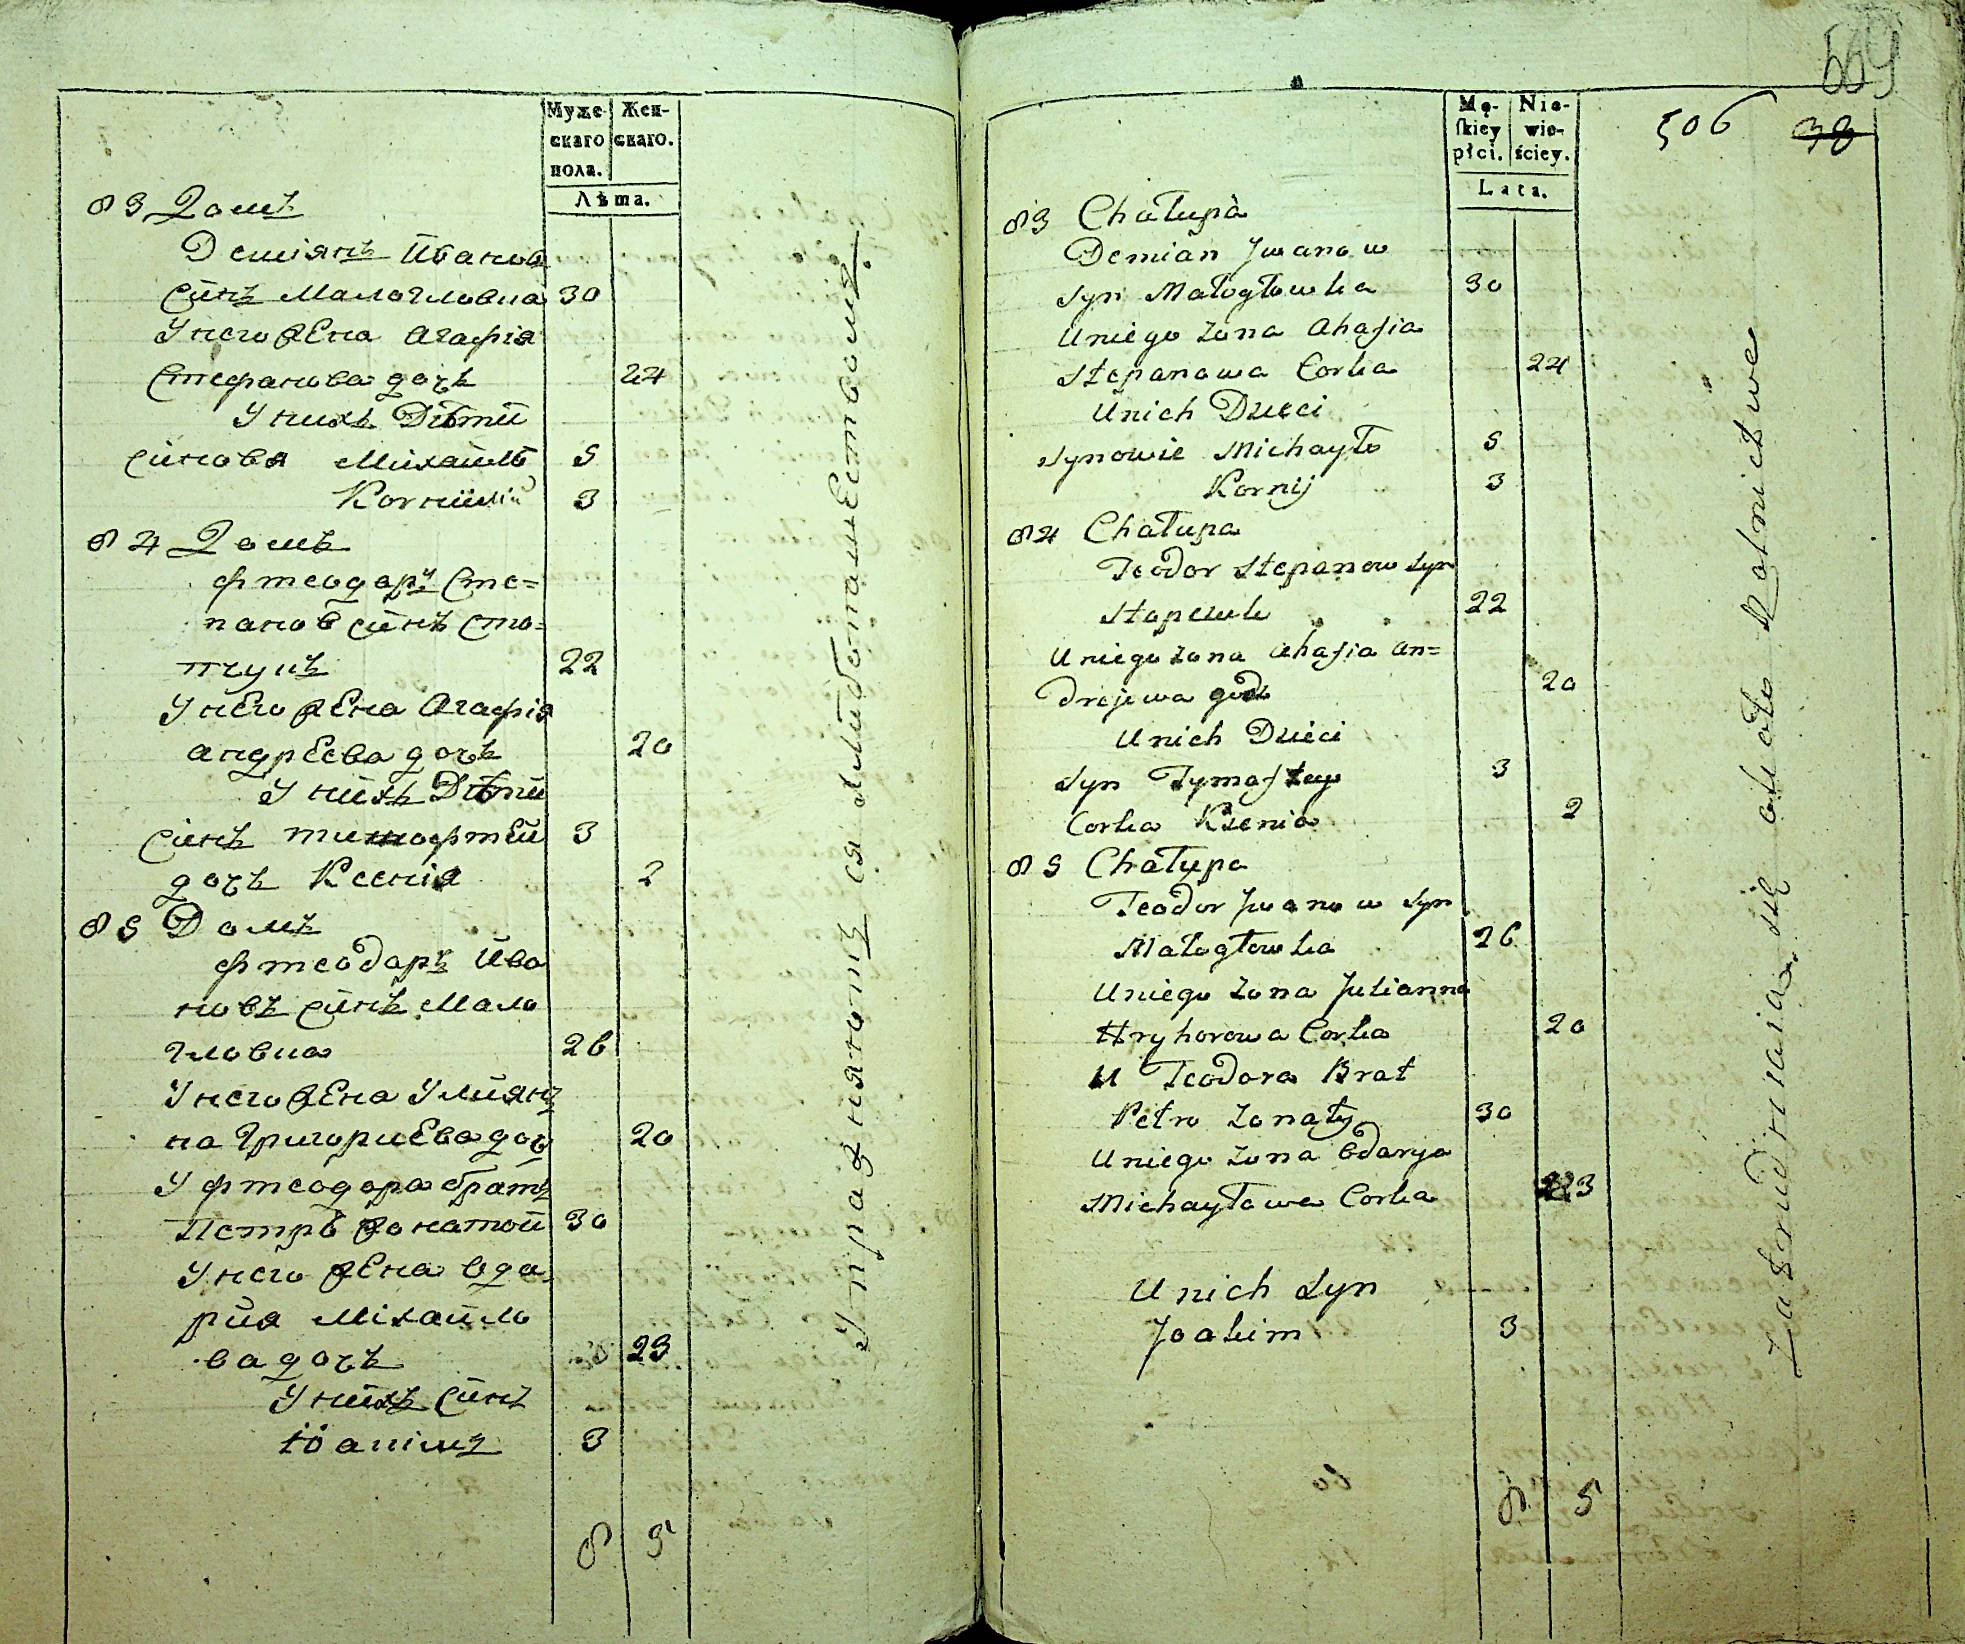 Муже-
скаго
пола.
Жен-
скаго.
Лѣта.
83 Домъ
Деміянъ Иванов
Синъ Малогловка 30
У него жена Агафія
Стефанова дочъ 24
У нихъ Дѣти
Синовя Михайло 5
Корнилій 3
84 Домъ
Фтеодоръ Сте=
панов синъ Сто=
пчукъ 22
У него жена Агафія
андреева дочъ 20
У нихъ Дѣти
Синъ тимофтей 3
дочъ Ксенія 2
85 Домъ
фтеодаръ Ива
новъ синъ Мало
гловка 26
У него жена Улиян
на Григориева доч 20
У фтеодора братъ
Петръ жонатой 30
У него жена Ода
рия Михайло
ва дочъ 23
У нихъ Синъ
Іоакимъ 3
8 5
Упражняютъ ся хлибопашествомъ.
669
506 38
Mę-
skiey
płci.
Nie-
wie-
ściey.
Lata.
83 Chałupa
Demian Jwanow
Syn Małogłowka 30
Uniego Zona Ahafia
Stepanowa Corka 24
Unich Dzieci
Synowie Michayło 5
Kornij 3
84 Chałupa
Teodor Stepanow Syn
Stopczuk 22
Uniego Zona Ahafia An=
drejewa 20
Unich Dzieci
Syn Tymoftey 3
Corka Ksenia 2
85 Chałupa
Teodor Jwanow Syn
Małogłowka 26
Uniego Zona Julianna
Hryhorowa Corka 20
U Teodora Brat
Petro Zonaty 30
Uniego Zona Odarya
Michayłowa Corka 23
Unich Syn
Joakim 3
8 5
Zatrudniaią się około Rolnictwa